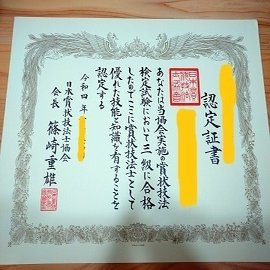 認定証書
あなたは当協会実施の賞状技法
検定試験において三級に合格
したのでここに賞状技法士として
優れた技能と知識を有することを
認定する
令和四年
日本賞状技法士協会
会長 篠崎重雄